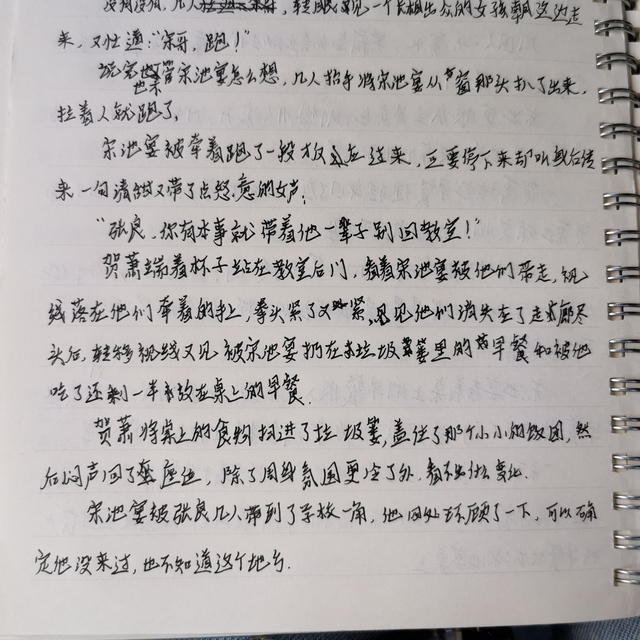 没有没有，几人 转眼瞧见一个长相出众的女孩朝这边走
来，又忙道：“宋哥，跑！”
说完也不管宋池宴怎么想，几人抬手将宋池宴从窗那头扒了出来，
拉着人就跑了。
宋池宴被牵着跑了一段放 过来，正要停下来却听身后传
来一句清甜又带了点怒意的女声：
“张良，你有本事就带着他一辈子别回教室！”
贺萧端着杯子站在教室后门，看着宋池宴被他们带走，视
线落在他们牵着的手上，拳头紧了又紧，见他们消失在了走廊尽
头后，转移视线又见被宋池宴扔在垃圾篓里的早餐和被他
吃了还剩一半放在桌上的早餐。
贺萧将桌上的食物扫进了垃圾篓，盖住了那个小小的饭团，然
后闷声回了座位，除了周身氛围更冷了外，看不出什么变化。
宋池宴被张良几人带到了学校一角，他四处环顾了一下，可以确
定他没来过，也不知道这个地方。